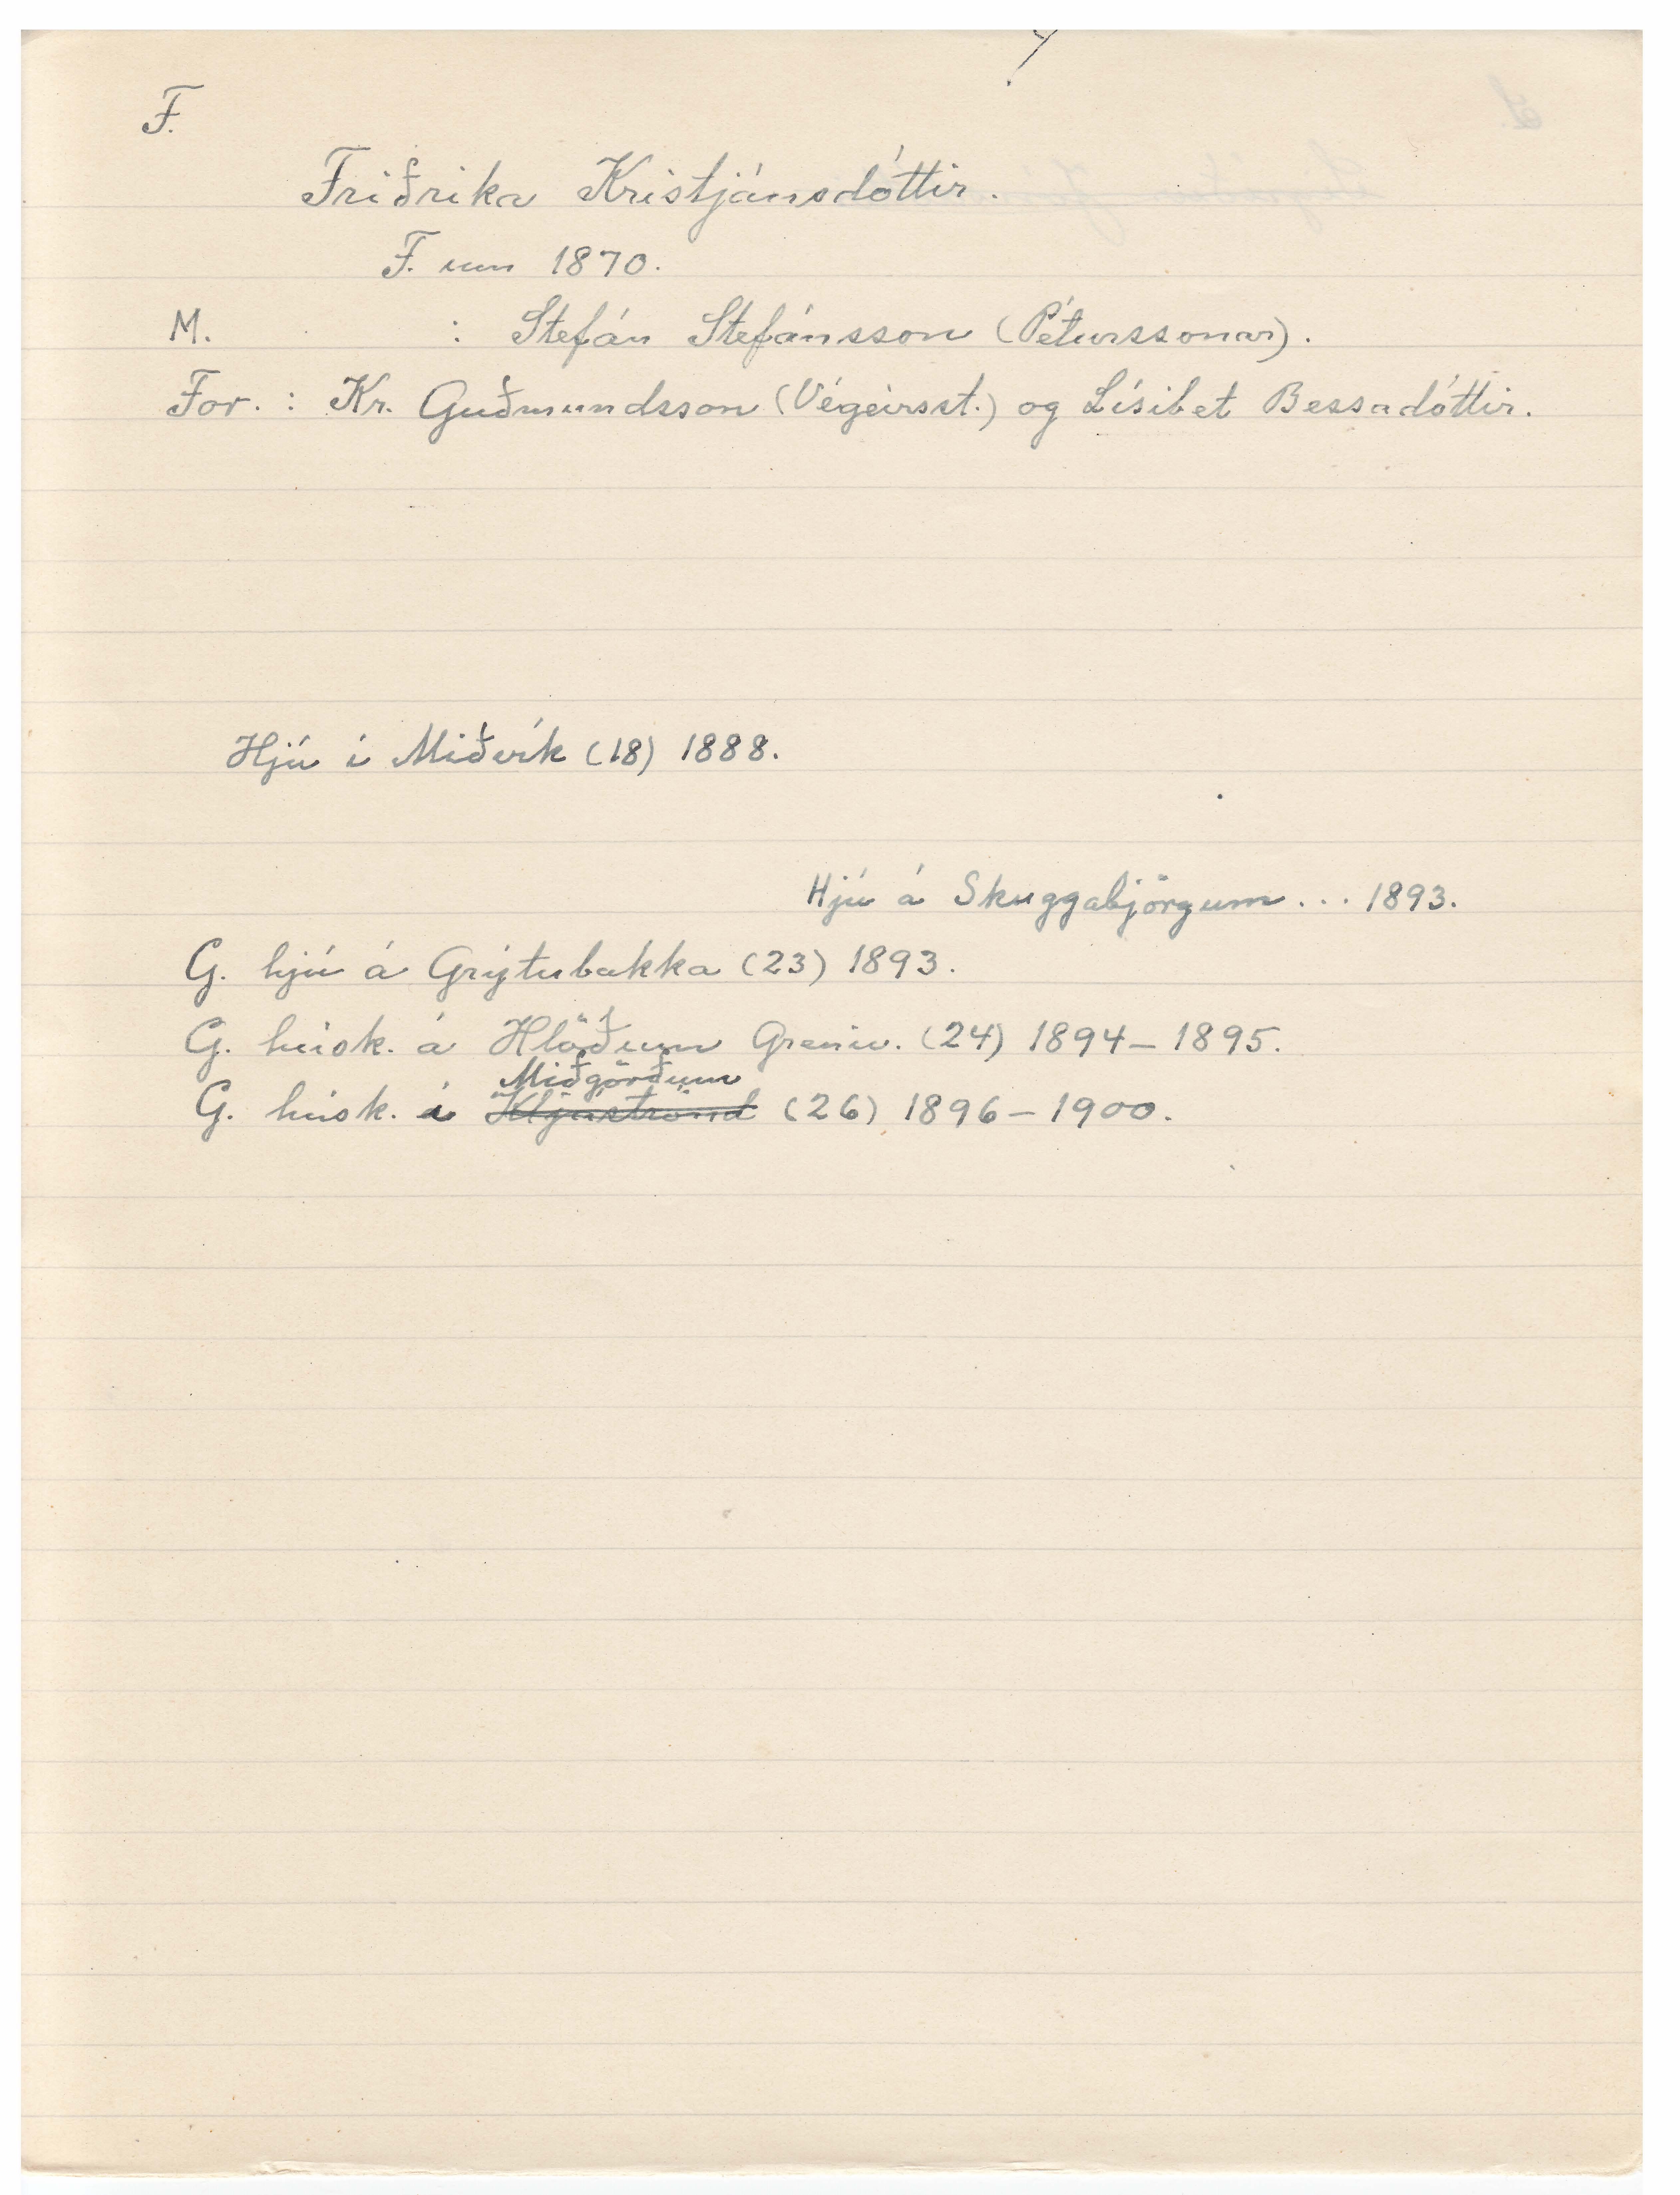 F.
Friðrika Kristjánsdóttir.
F. um 1870.
M. : Stefán Stefánsson (Péturssonar).
For. : Kr. Guðmundsson (Végeirsst.) og Lísibet Bessadóttir.
Hjú í Miðvík (18) 1888.
Hjú á Skuggabjörgum ... 1893.
G. hjú á Grýtubakka (23) 1893.
G. húsk. á Hlöðum Greniv. (24) 1894 – 1895.
Miðgörðum
G. húsk. í Kljáströnd (26) 1896 – 1900.